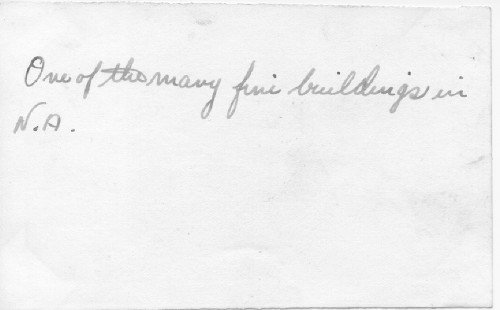 One of the many fine buildings in
N.A.